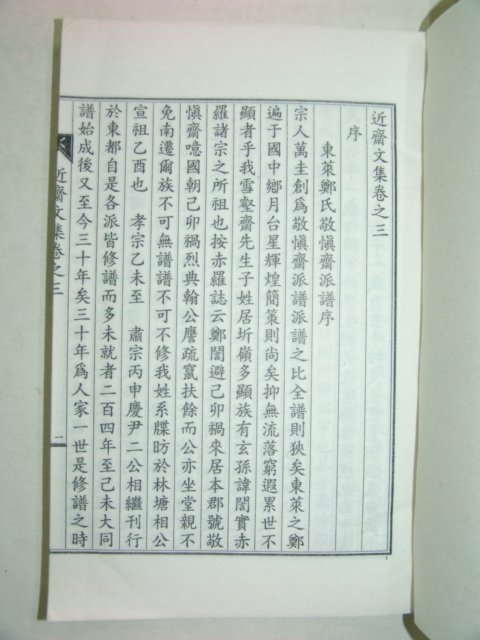 近齋文集卷之三
序
東萊鄭氏敬愼齋派譜序
宗人萬圭創爲敬愼齋派譜派譜之比全譜則狹矣東萊之鄭
遍于國中鄉月台星輝煌簡策則尚矣抑無流落窮遐累世不
顯者乎我雪壑齋先生子姓居圻嶺多顯族有玄孫諱誾實赤
羅諸宗之所祖也按赤羅誌云鄭誾避己卯禍來居本郡號敬
愼齋噫國朝己卯禍烈典翰公譍疏竄扶餘而公亦坐堂親不
免南遷爾族不可無譜譜不可不修我姓系牒昉於林塘相公
宣祖乙酉也 孝宗乙未至 肅宗丙申慶尹二公相繼刊行
於東都自是各派皆修譜而多未就者二百四年至己未大同
譜始成後又至今三十年矣三十年爲人家一世是修譜之時
近齋文集卷之三
一